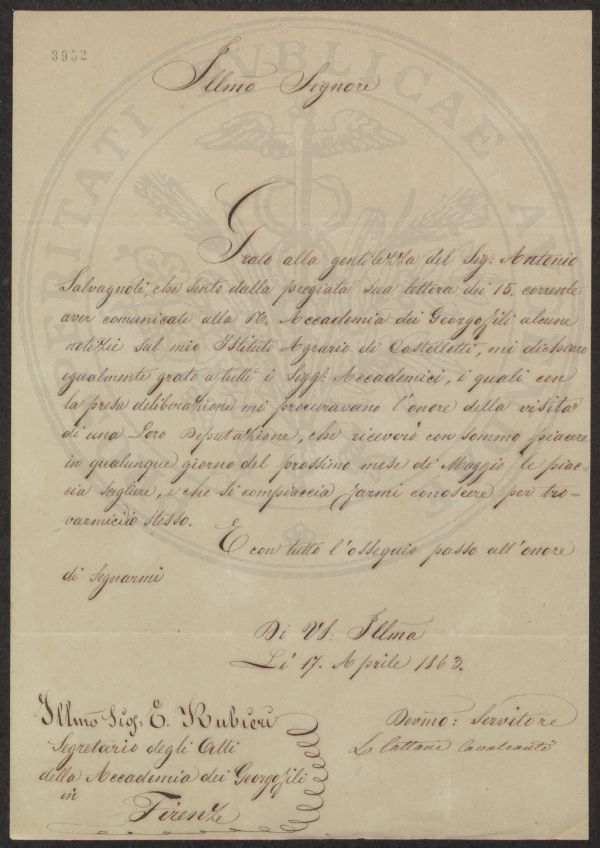 3952
Illmo Signore
Grato alla gentilezza del Sig: Antonio
Salvagnoli, che sento dalla pregiata sua lettera dei 15. corrente
aver comunicate alla R. Accademia dei Georgofili alcune
notizie sul mio Istituto Agrario di Castelletti, mi dichiaro
egualmente grato a tutti i Sigg. Accademici, i quali con
la presa deliberazione mi procuravano l'onore della visita
di una Loro Deputazione, che riceverò con sommo piacere
in qualunque giorno del prossimo mese di Maggio le piac=
cia scegliere, e che si compiaccia farmi conoscere per tro=
varmici io stesso.
E con tutto l'ossequio passo all'onore
di segnarmi
Di VS: Illma
Li 17. Aprile 1863.
Illmo Sig: E. Rubieri
Segretario degli Atti
della Accademia dei Georgofili
in
Firenze
Devmo: Servitore
L Cattani Cavalcanti